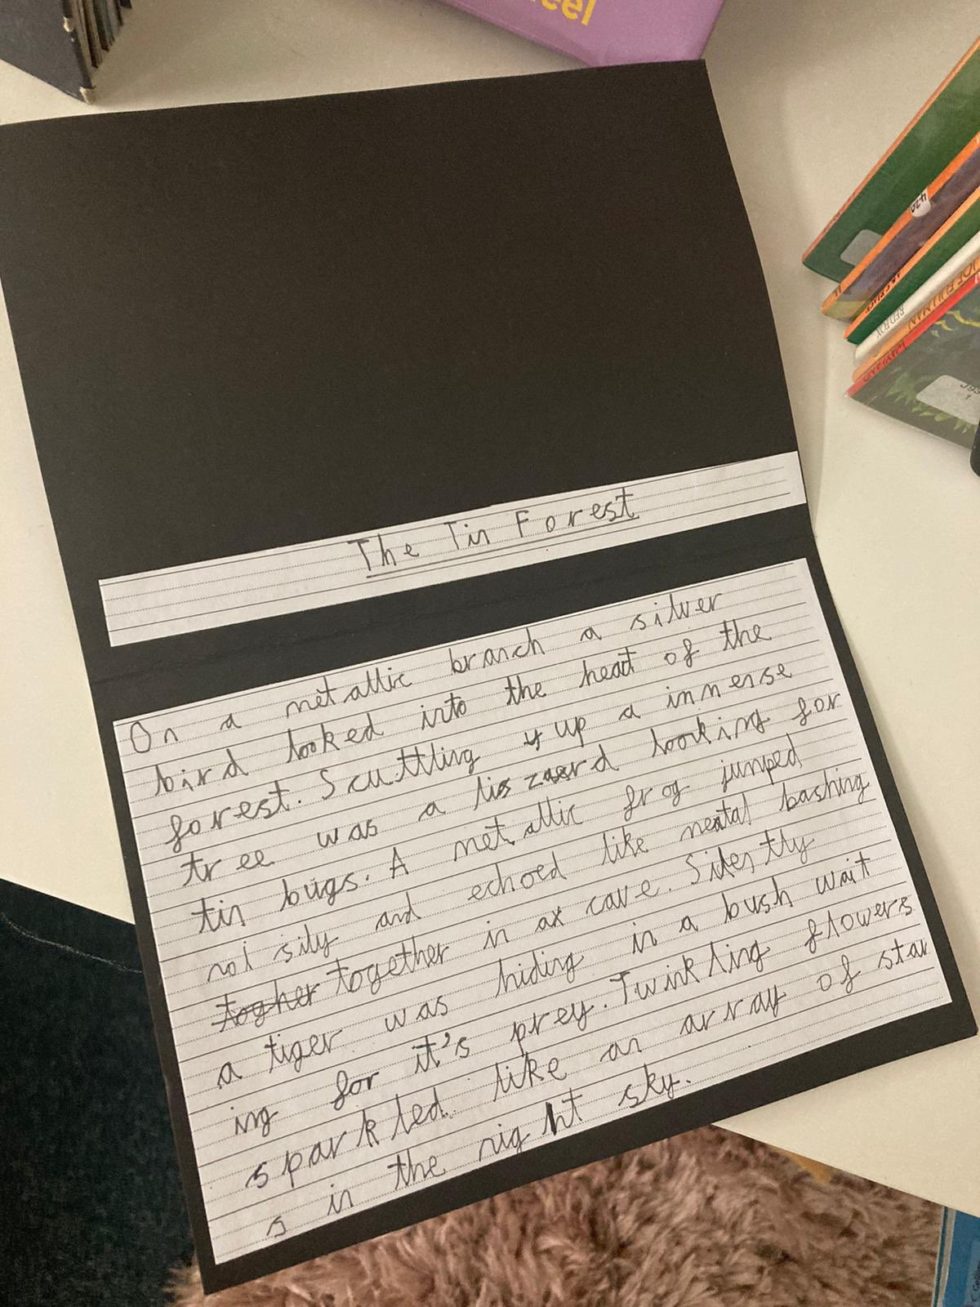 eel
The Tin Forest
On a metallic branch a silver
bird looked into the heart of the
forest. Scuttling up a immense
tree was a lizard looking for
tin bugs. A metallic frog jumped
noisily and echoed like metal bashing
togher together in a cave. Silently
a tiger was hiding in a bush wait
ing for it's prey. Twinkling flowers
sparkled like an array of star
s in the night sky.